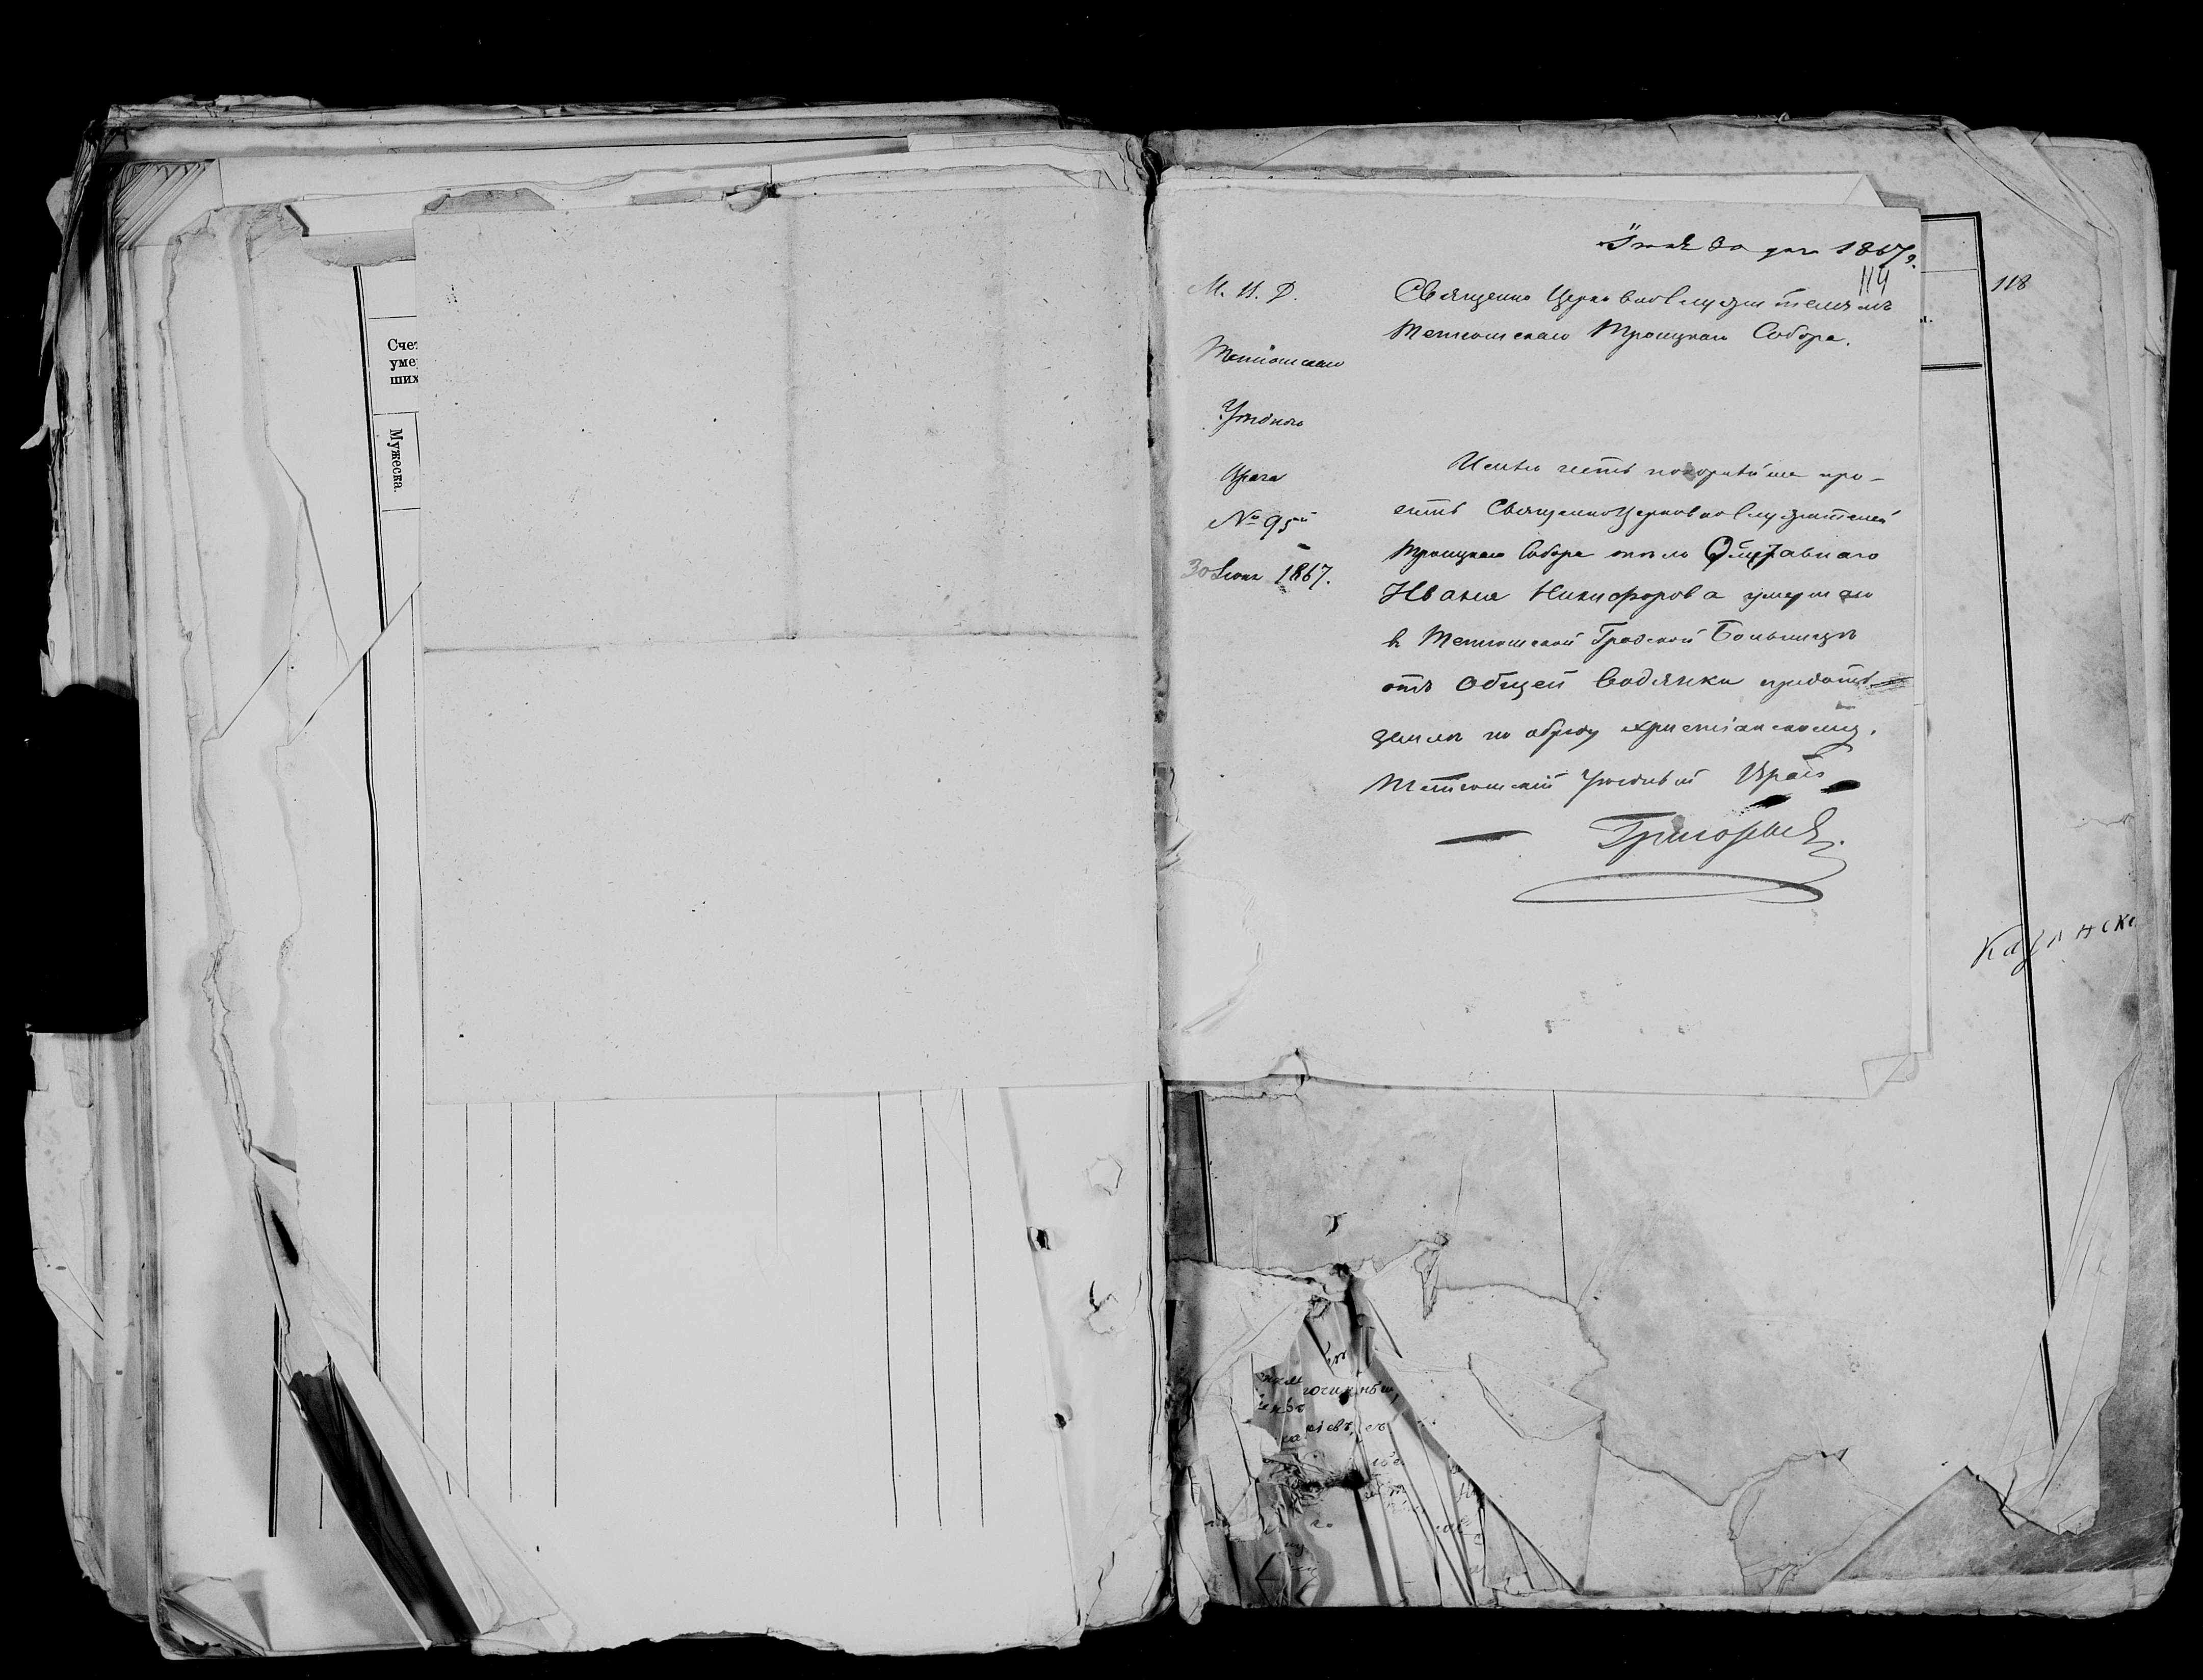 Счет
умер
ших
Мужеска.
Іюня 30 дня 1867 г.
114
118
М. В. Д.
Тетюшскаго
Уѣзднаго
Врача
№ 95
30 Іюня 1867.
Священно Церковнослужителямъ
Тетюшскаго Троицкаго Собора.
Имѣю честь покорнѣйше про-
сить СвященноЦерковнослужителей
Троицкаго Собора тѣло Отставнаго
Ивана Никифорова умершаго
в Тетюшской Градской Больницѣ
отъ Общей Водянки предать
землѣ по обряду христіанскому.
Тетюшскій Уѣздный Врачъ
Григорьевъ.
Казанск